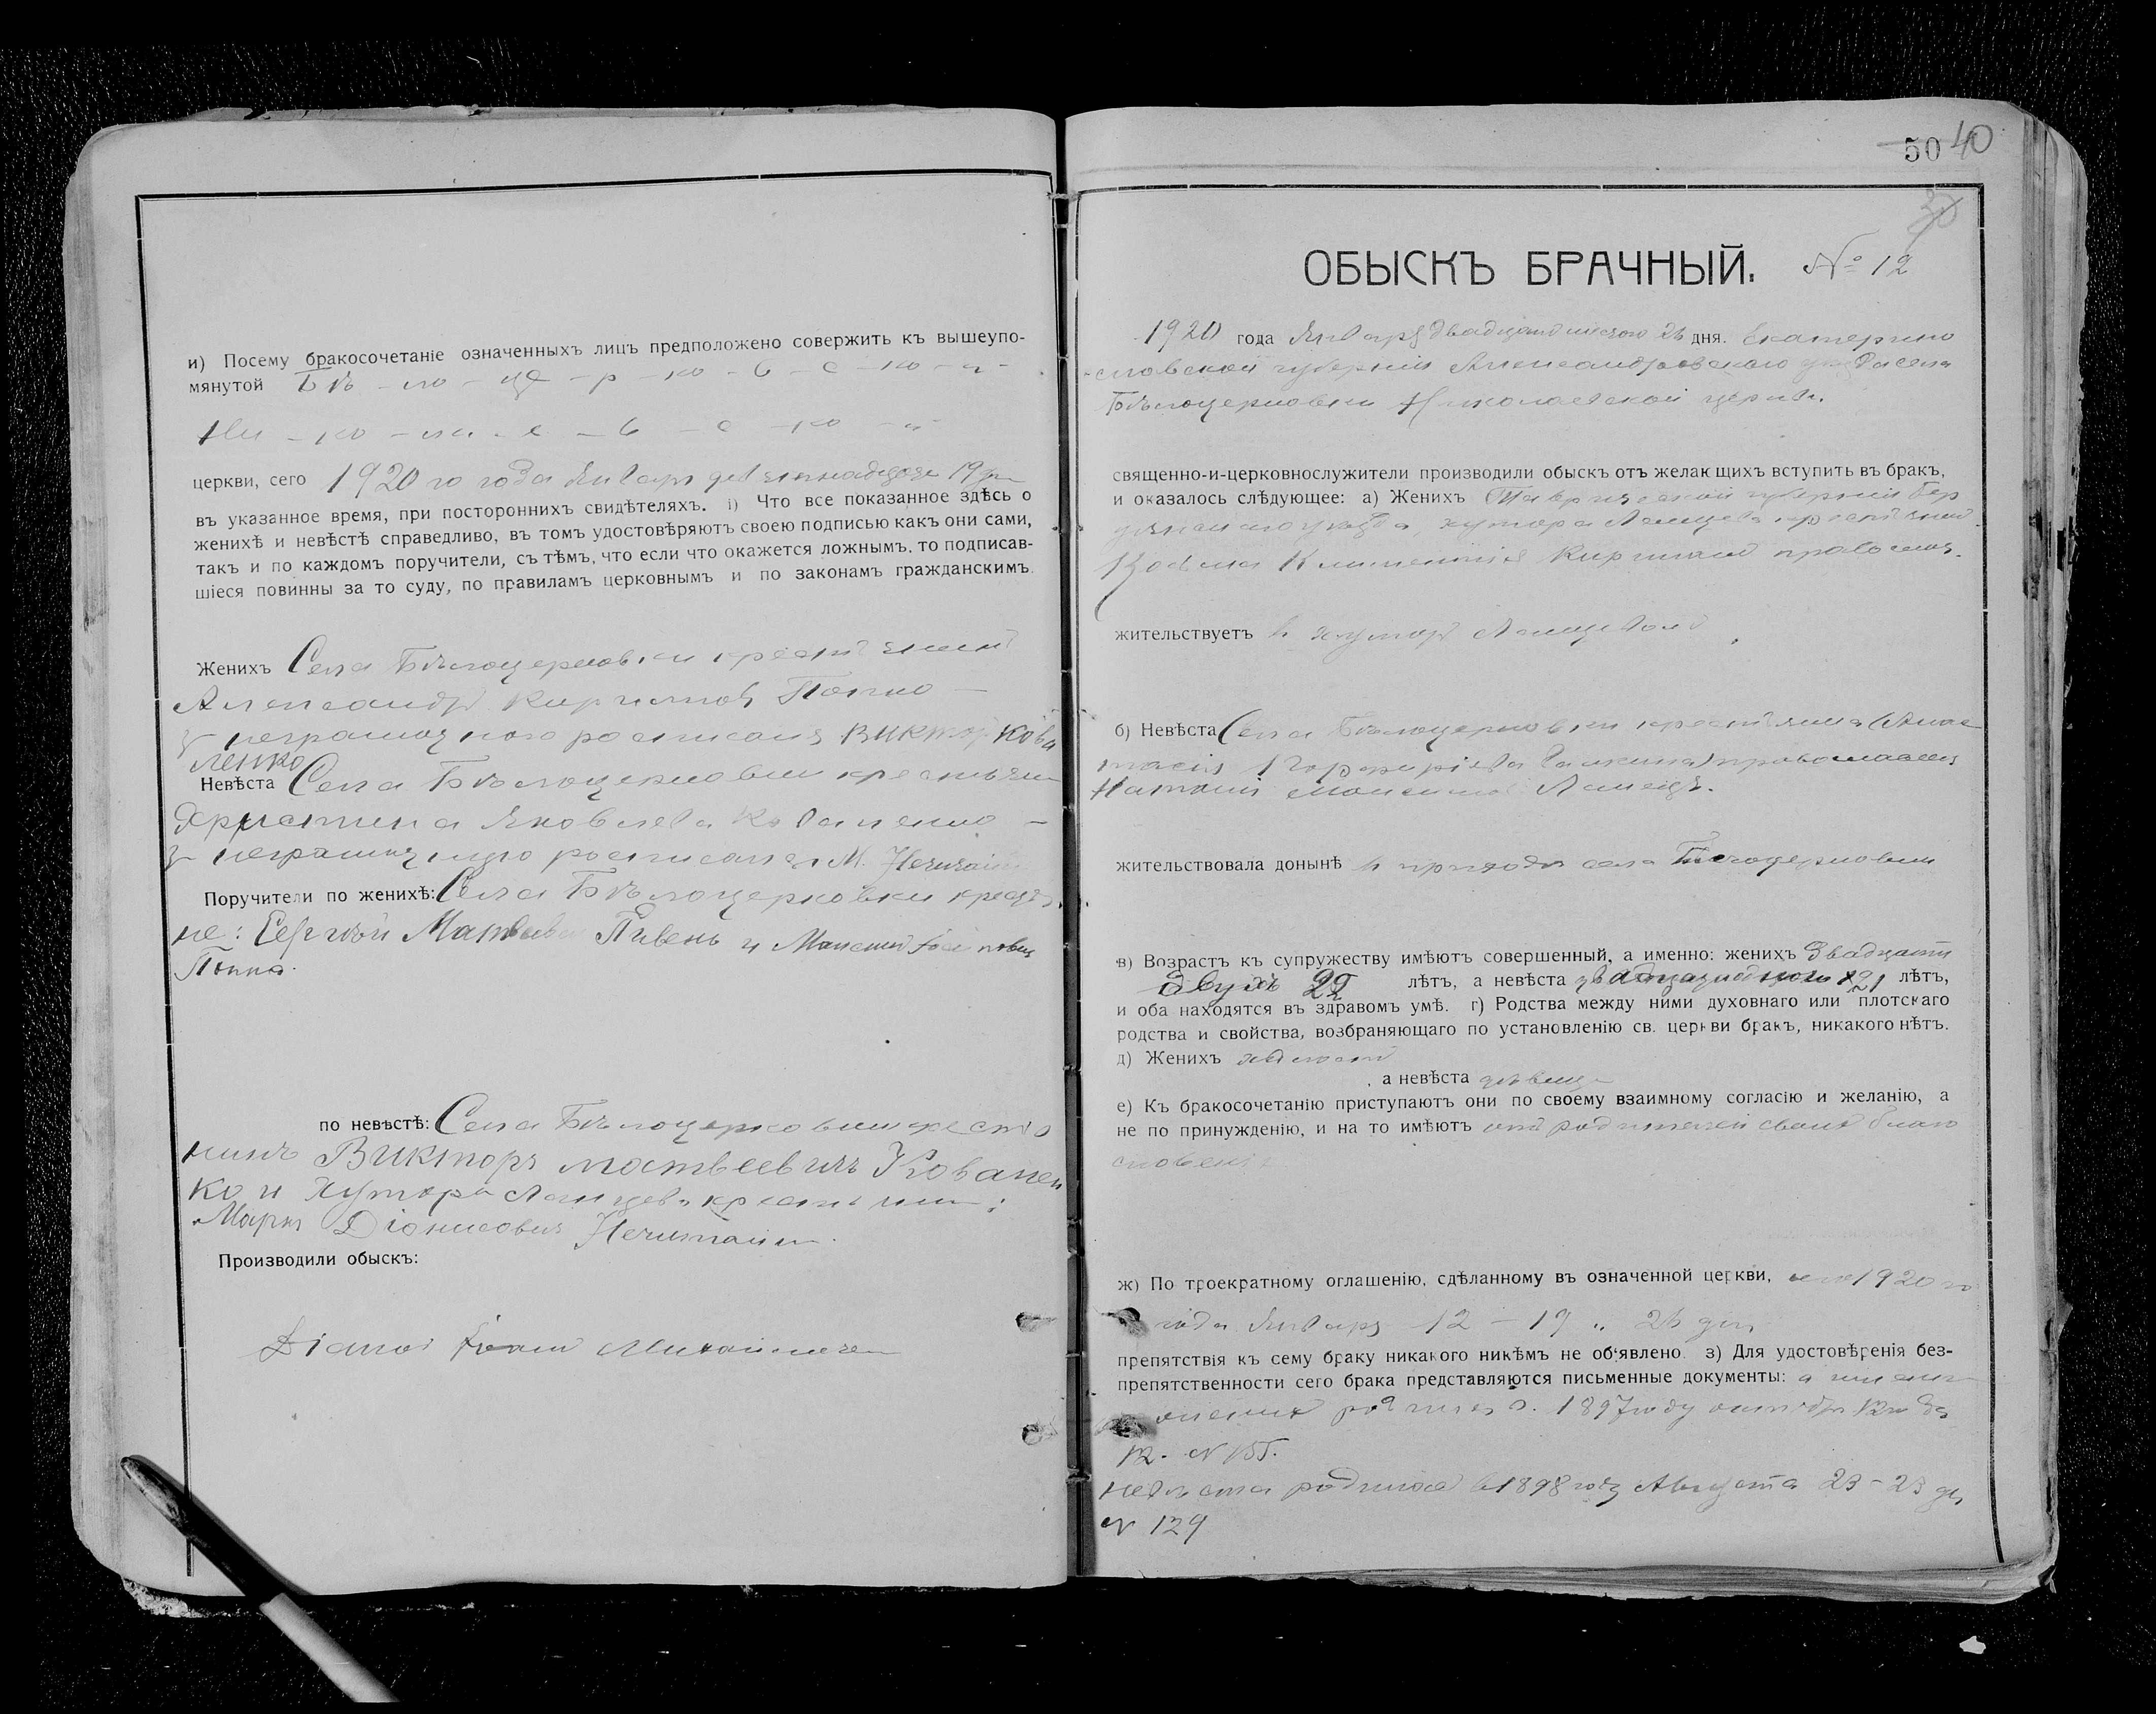 и) Посему бракосочетаніе означенныхъ лицъ предположено совержить къ вышеупо-
мянутой Бѣ - ло - це - р - но - в - с - ко - й -
Ни - ко - ла - е - в - с - ко - й
церкви, сего 1920 го года Января девятнадцаго 19 дня
въ указанное время, при постороннихъ свидѣтеляхъ. і) Что все показанное здѣсь о
женихѣ и невѣстѣ справедливо, въ томъ удостовѣряютъ своею подписью какъ они сами,
такъ и по каждомъ поручители, съ тѣмъ, что если что окажется ложнымъ, то подписав-
шіеся повинны за то суду, по правиламъ церковнымъ и по законамъ гражданскимъ.
Женихъ Села Бѣлоцерковки крестьянинъ
Александръ Кирилловъ Поппо -
неграмотного росписался Виктор Кова
ленко
Невѣста Села Бѣлоцерковки крестьян
Христина Яковлева Коваленко -
неграмотную росписался М. Нечитайло
Поручители по женихѣ: Села Бѣлоцерковки крестья
не: Сергѣй Матвѣевъ Пивень и Максим
Поппо.
по невѣстѣ: Села Бѣлоцерковки кресть
нинъ Викторъ матвеевичъ Ковален
ко и Хутора Ланцева крестьянин:
Маркъ Діонисовичъ Нечитайло.
Производили обыскъ:
Іоанн Михайлович
50 40
30
ОБЫСКЪ БРАЧНЫЙ. № 12
1920 года Января двадцать шестого 26 дня. Екатерино
славской губерніи Александровскаго уѣзда села
Бѣлоцерковки Николаевской церкви.
священно-и-церковнослужители производили обыскъ отъ желающихъ вступить въ бракъ,
и оказалось слѣдующее: а) Женихъ Таврической губерніи Бер
дянского уѣзда, хутора Ланцева крестьянин
Косьма Климентіев православ.
жительствуетъ в хуторѣ Ланцевом
б) Невѣста Села Бѣлоцерковки крестьянка Анас
тасія Порфиріева православная
Ланецъ.
жительствовала донынѣ в приходѣ села Бѣлоцерковки
в) Возрастъ къ супружеству имѣютъ совершенный, а именно: женихъ двадцати
двухъ 22 лѣтъ, а невѣста 21 лѣтъ,
и оба находятся въ здравомъ умѣ. г) Родства между ними духовнаго или плотскаго
родства и свойства, возбраняющаго по установленію св. церкви бракъ, никакого нѣтъ.
д) Женихъ холостъ
, а невѣста дѣвица
е) Къ бракосочетанію приступаютъ они по своему взаимному согласію и желанію, а
не по принужденію, и на то имѣютъ отъ родителей своихъ благо
словеніе
ж) По троекратному оглашенію, сдѣланному въ означенной церкви, 1920 го
года Января 12 - 19 и 26 дня
препятствія къ сему браку никакого никѣмъ не объявлено. з) Для удостовѣренія без-
препятственности сего брака представляются письменные документы: а именно
женихъ родился в 1897 году октября 12
12. №
невѣста родилась в 1898 году Августа 23 - 23 дня
№ 129